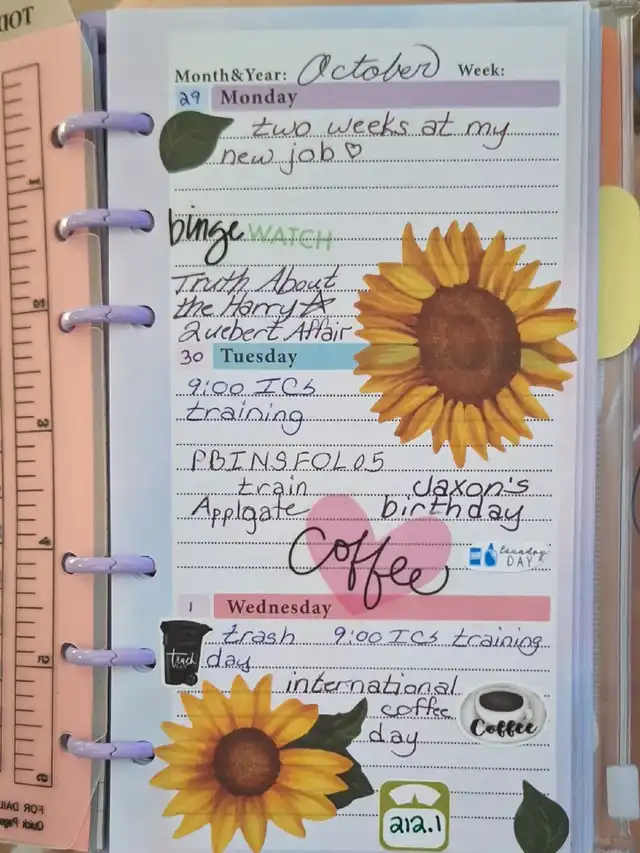 Month&Year: October Week:
29 Monday
two weeks at my
new job ♡
binge WATCH
Truth About
the Harry
Quebert Affair
30 Tuesday
9:00 ICs
training
PBINSFOL05
train
Applgate
Jaxon's
birthday
coffee
laundry
DAY
1 Wednesday
trash
trash 9:00 ICs training
day
international
coffee
day
Coffee
212.1
TOD
1
2
3
4
5
6
FOR DAIL
Quick Page